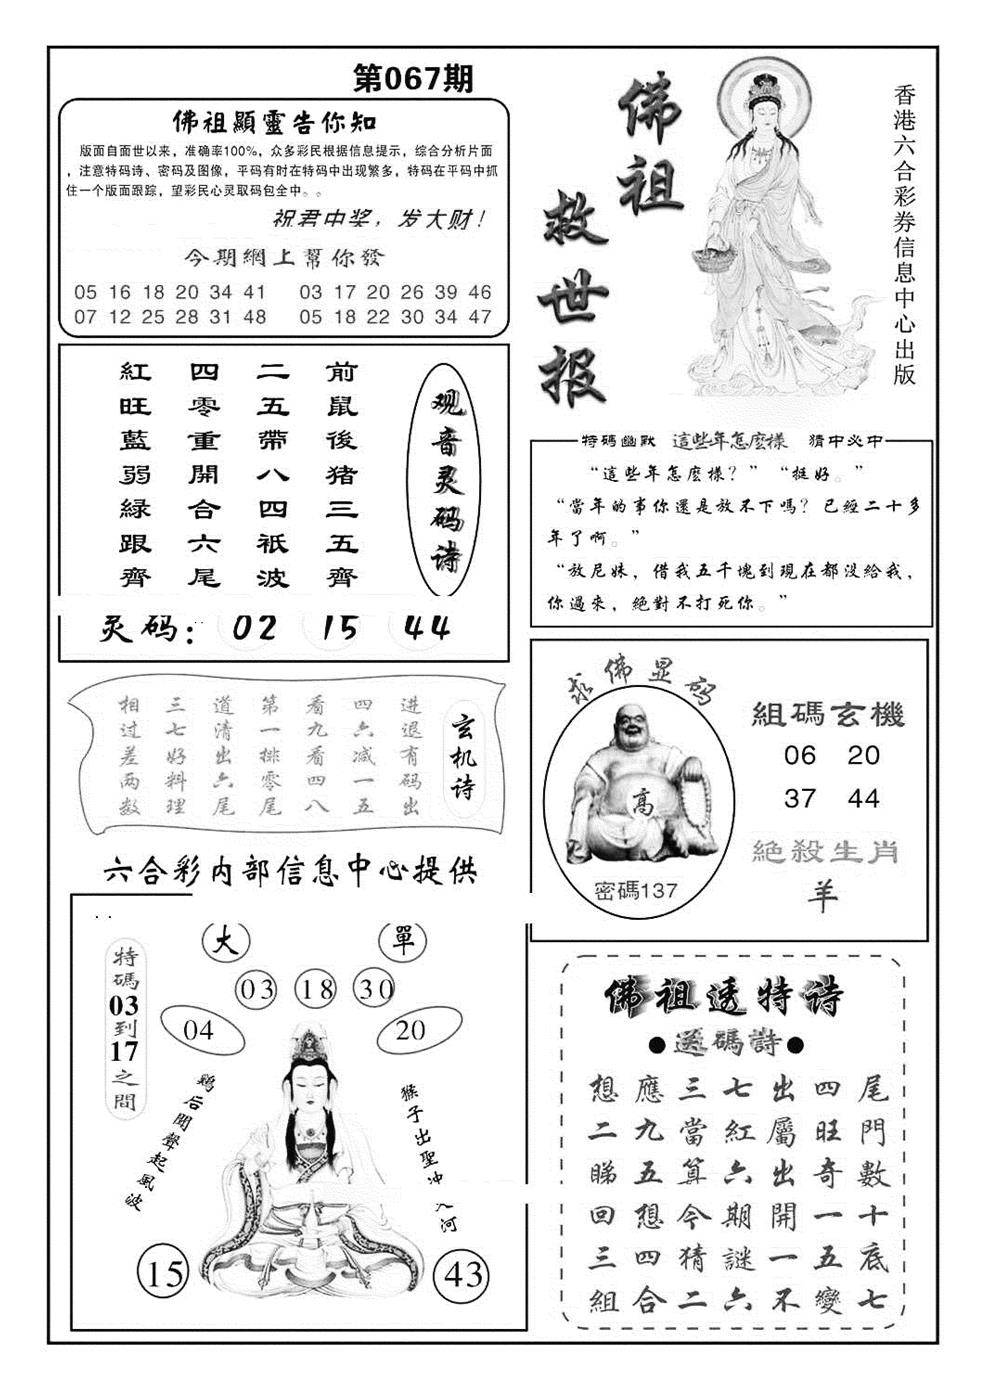 第067期
佛祖顯靈告你知
版面自面世以来，准确率100%，众多彩民根据信息提示，综合分析片面
，注意特码诗、密码及图像，平码有时在特码中出现繁多，特码在平码中抓
住一个版面跟踪，望彩民心灵取码包全中。。
祝君中奖，发大财！
今期網上幫你發
05 16 18 20 34 41 03 17 20 26 39 46
07 12 25 28 31 48 05 18 22 30 34 47
佛祖
救世报
香港六合彩券信息中心出版
观音灵码诗
前鼠後猪三五齊
二五帶八四祇波
四零重開合六尾
紅旺藍弱緑跟齊
灵码： 02 15 44
特碼幽默 這些年怎麽樣 猜中必中
“這些年怎麽樣？” “挺好。”
“當年的事你還是放不下嗎？已經二十多
年了啊。”
“放尼妹，借我五千塊到現在都没給我，
你過來，絕對不打死你。”
玄机诗
进退有码出
四六减一五
看九看四八
第一排零尾
道清出六尾
三七好料理
相过差两数
求佛显码
高
密碼137
組碼玄機
06 20
37 44
絕殺生肖
羊
六合彩内部信息中心提供
大 單
03 18 30
04 20
特碼03到17之間
鶏后聞聲起風波
猴子出聖冲河
15 43
佛祖透特诗
●送碼詩●
想應三七出四尾
二九當紅屬旺門
睇五算六出奇數
回想今期開一十
三四猜謎一五底
組合二六不變七